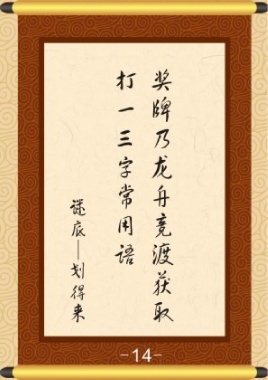 奖牌乃龙舟竞渡获取
打一三字常用语
谜底——划得来
-14-